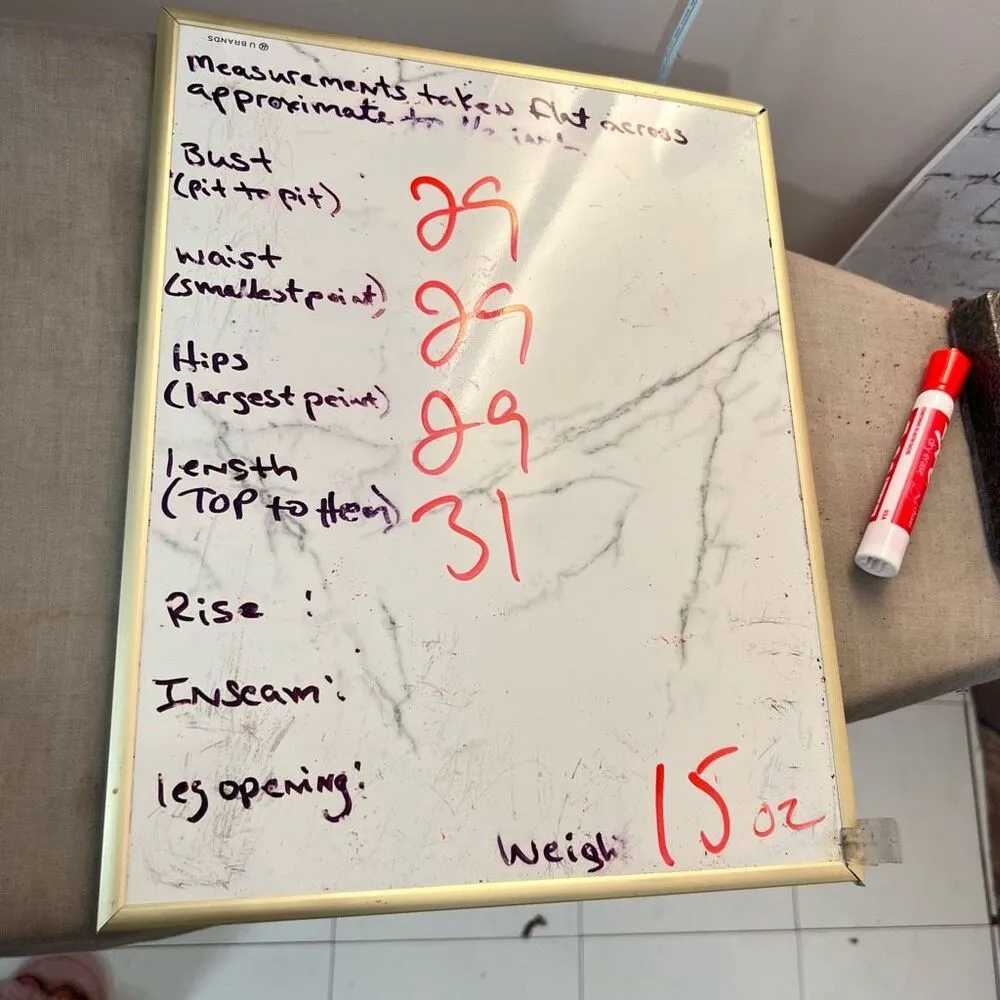 U BRANDS
Measurements taken flat across
approximate to
Bust
(pit to pit) 29
waist
(smallest point) 29
Hips
(largest point) 29
length
(TOP to Hem) 31
Rise :
Inseam:
leg opening:
Weigh 15 oz
dry erase